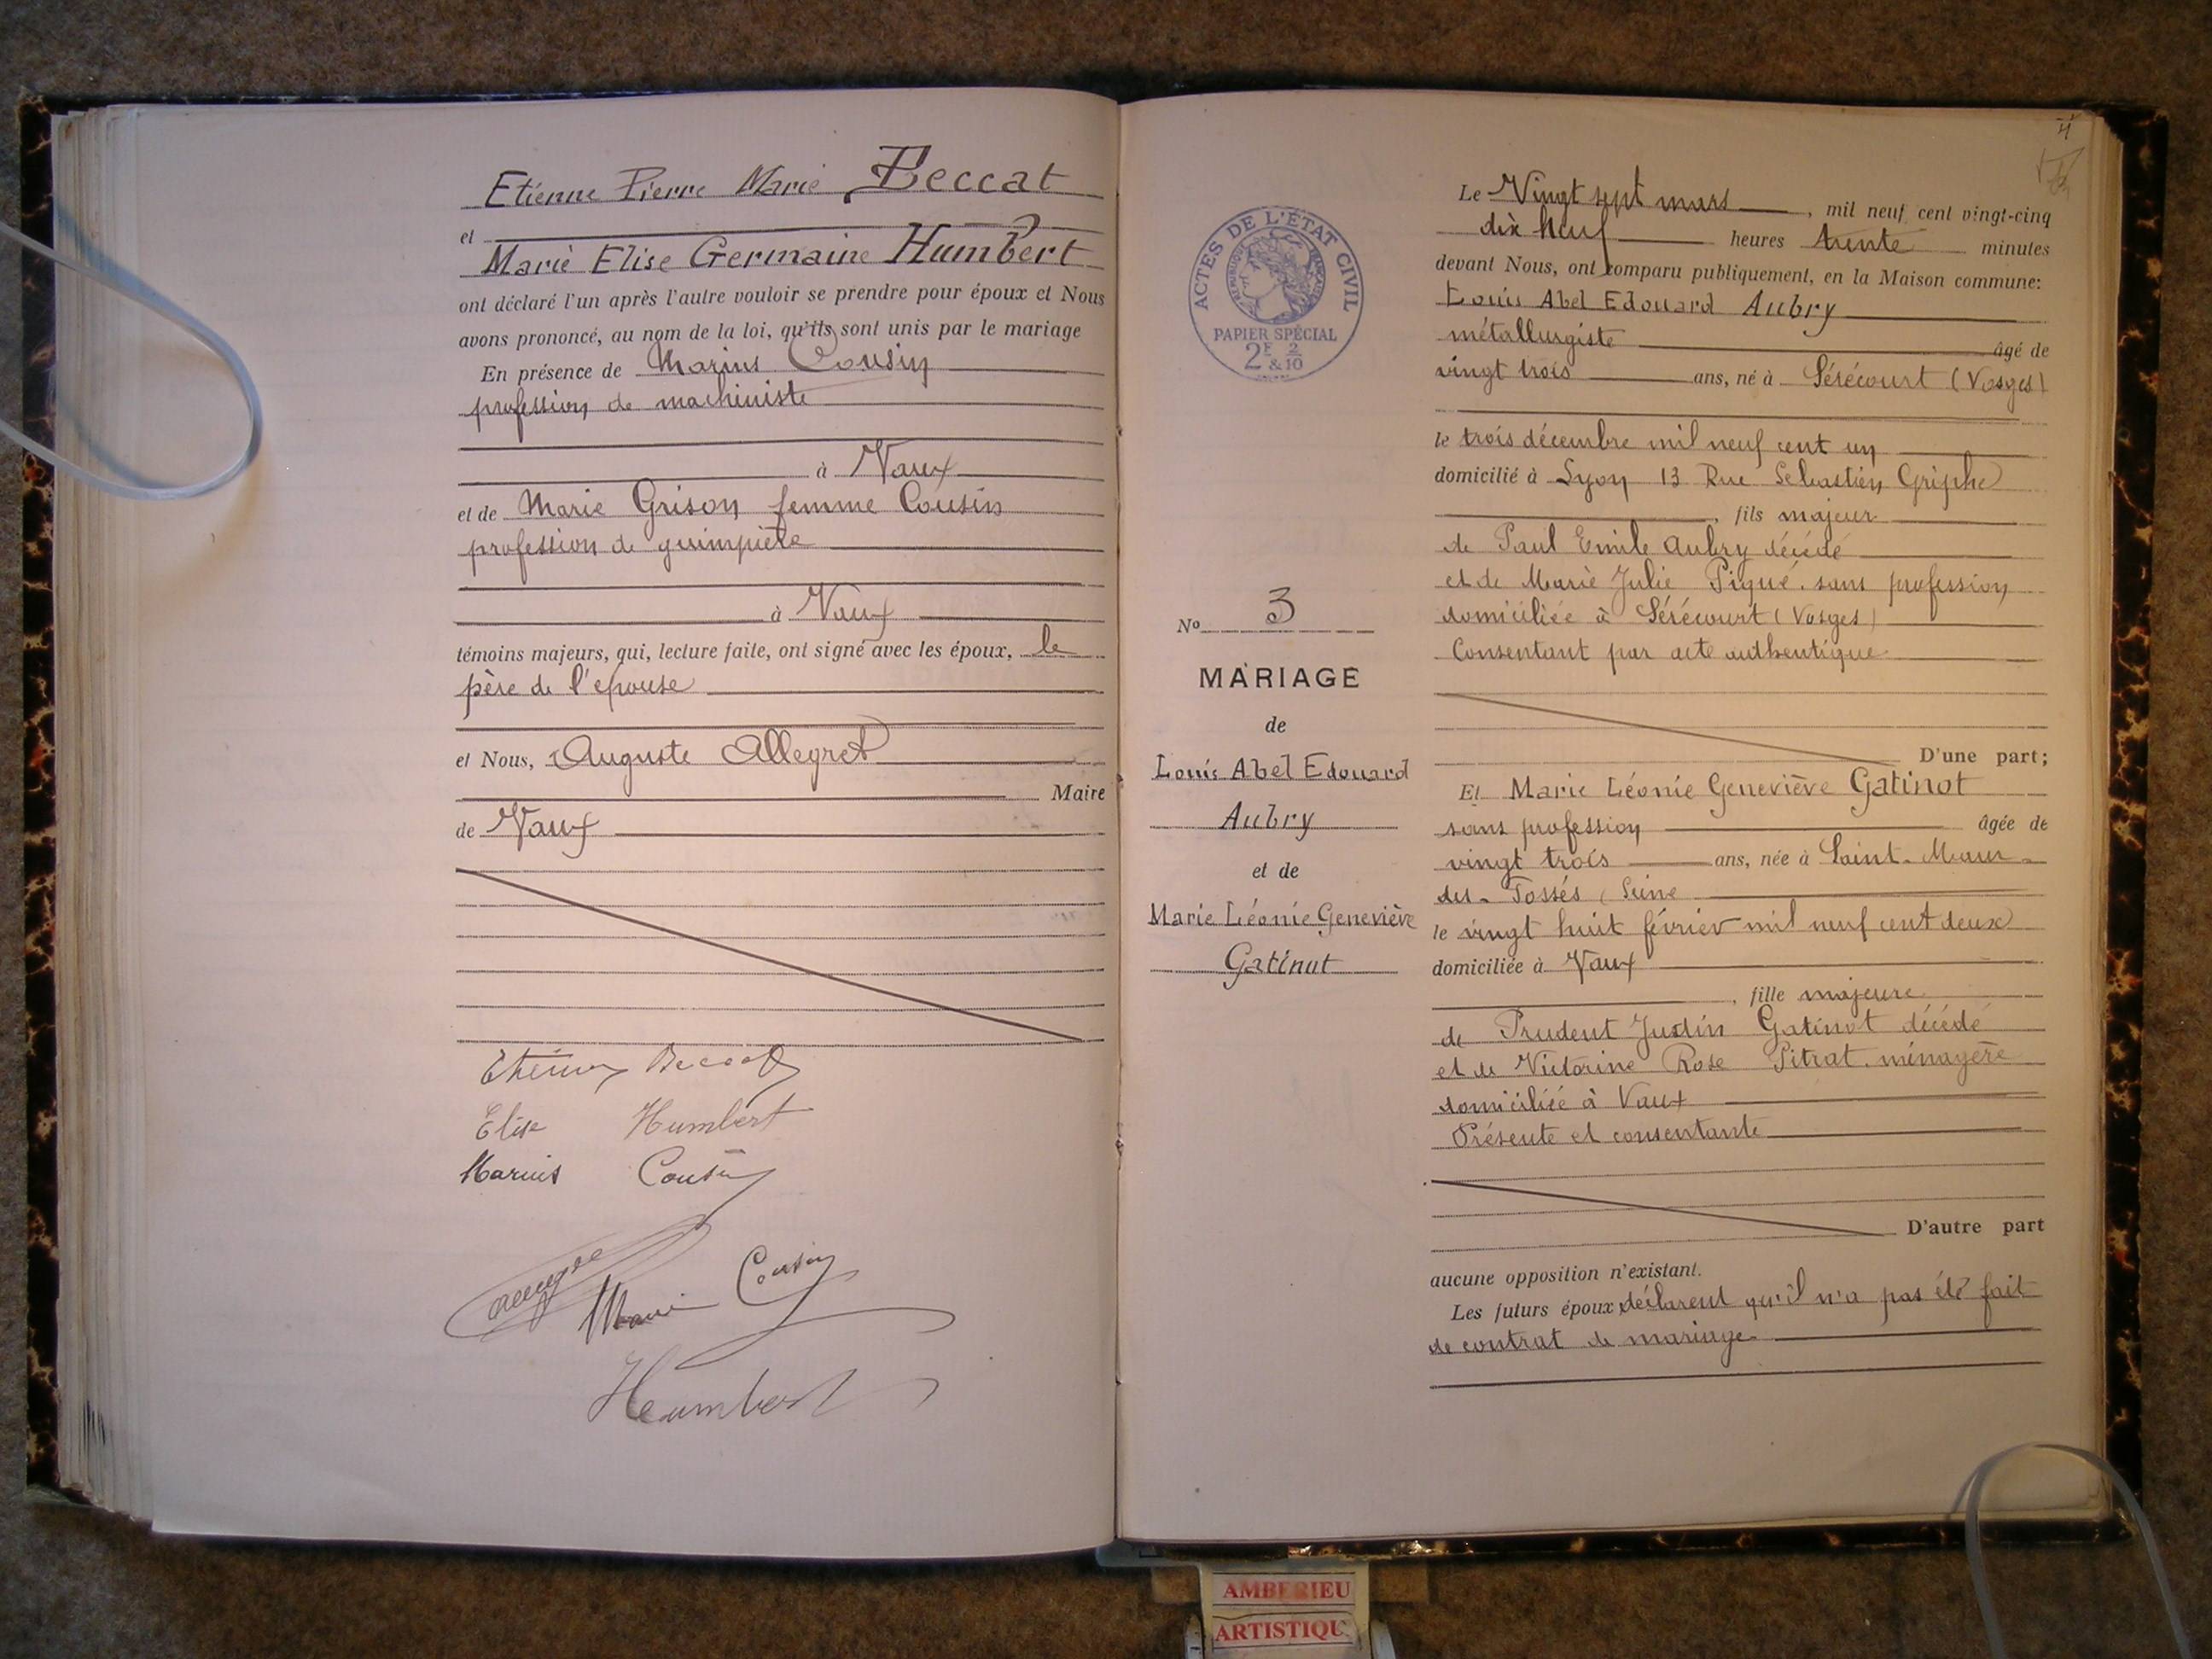 Etienne Pierre Marie Beccat
et
Marie Elise Germaine Humbert
ont déclaré l'un après l'autre vouloir se prendre pour époux et Nous
avons prononcé, au nom de la loi, qu'ils sont unis par le mariage
En présence de Marius Cousin
profession de machiniste
à Vaux
et de Marie Grison femme Cousin
profession de guimpière
à Vaux
témoins majeurs, qui, lecture faite, ont signé avec les époux, le
père de l'epouse
et Nous, Auguste Allegret
Maire
de Vaux
Etienne Beccat
Elise Humbert
Marius Cousin
Marie Cousin
Humbert
4
ACTES DE L'ÉTAT CIVIL
RÉPUBLIQUE FRANÇAISE
PAPIER SPÉCIAL
2F 2
& 10
No 3
MARIAGE
de
Louis Abel Edouard
Aubry
et de
Marie Léonie Geneviève
Gatinot
Le Vingt sept mars, mil neuf cent vingt-cinq
dix neuf heures trente minutes
devant Nous, ont comparu publiquement, en la Maison commune:
Louis Abel Edouard Aubry
métallurgiste âgé de
vingt trois ans, né à Sérécourt (Vosges)
le trois décembre mil neuf cent un
domicilié à Lyon 13 Rue Sébastien Griphe
, fils majeur
de Paul Emile Aubry décédé
et de Marie Julie Piqué. sans profession
domiciliée à Sérécourt (Vosges)
Consentant par acte authentique
D'une part;
Et Marie Léonie Geneviève Gatinot
sans profession âgée de
vingt trois ans, née à Saint-Maur-
des-Fossés (Seine
le vingt huit février mil neuf cent deux
domiciliée à Vaux
, fille majeure
de Prudent Justin Gatinot décédé
et de Victorine Rose Pitrat. ménagère
domiciliée à Vaux
Présente et consentante
D'autre part
aucune opposition n'existant.
Les futurs époux déclarent qu'il n'a pas été fait
de contrat de mariage
AMBERIEU
ARTISTIQU